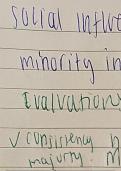 social influe
minority in
Evaluation
✓ consistency h
majority. M